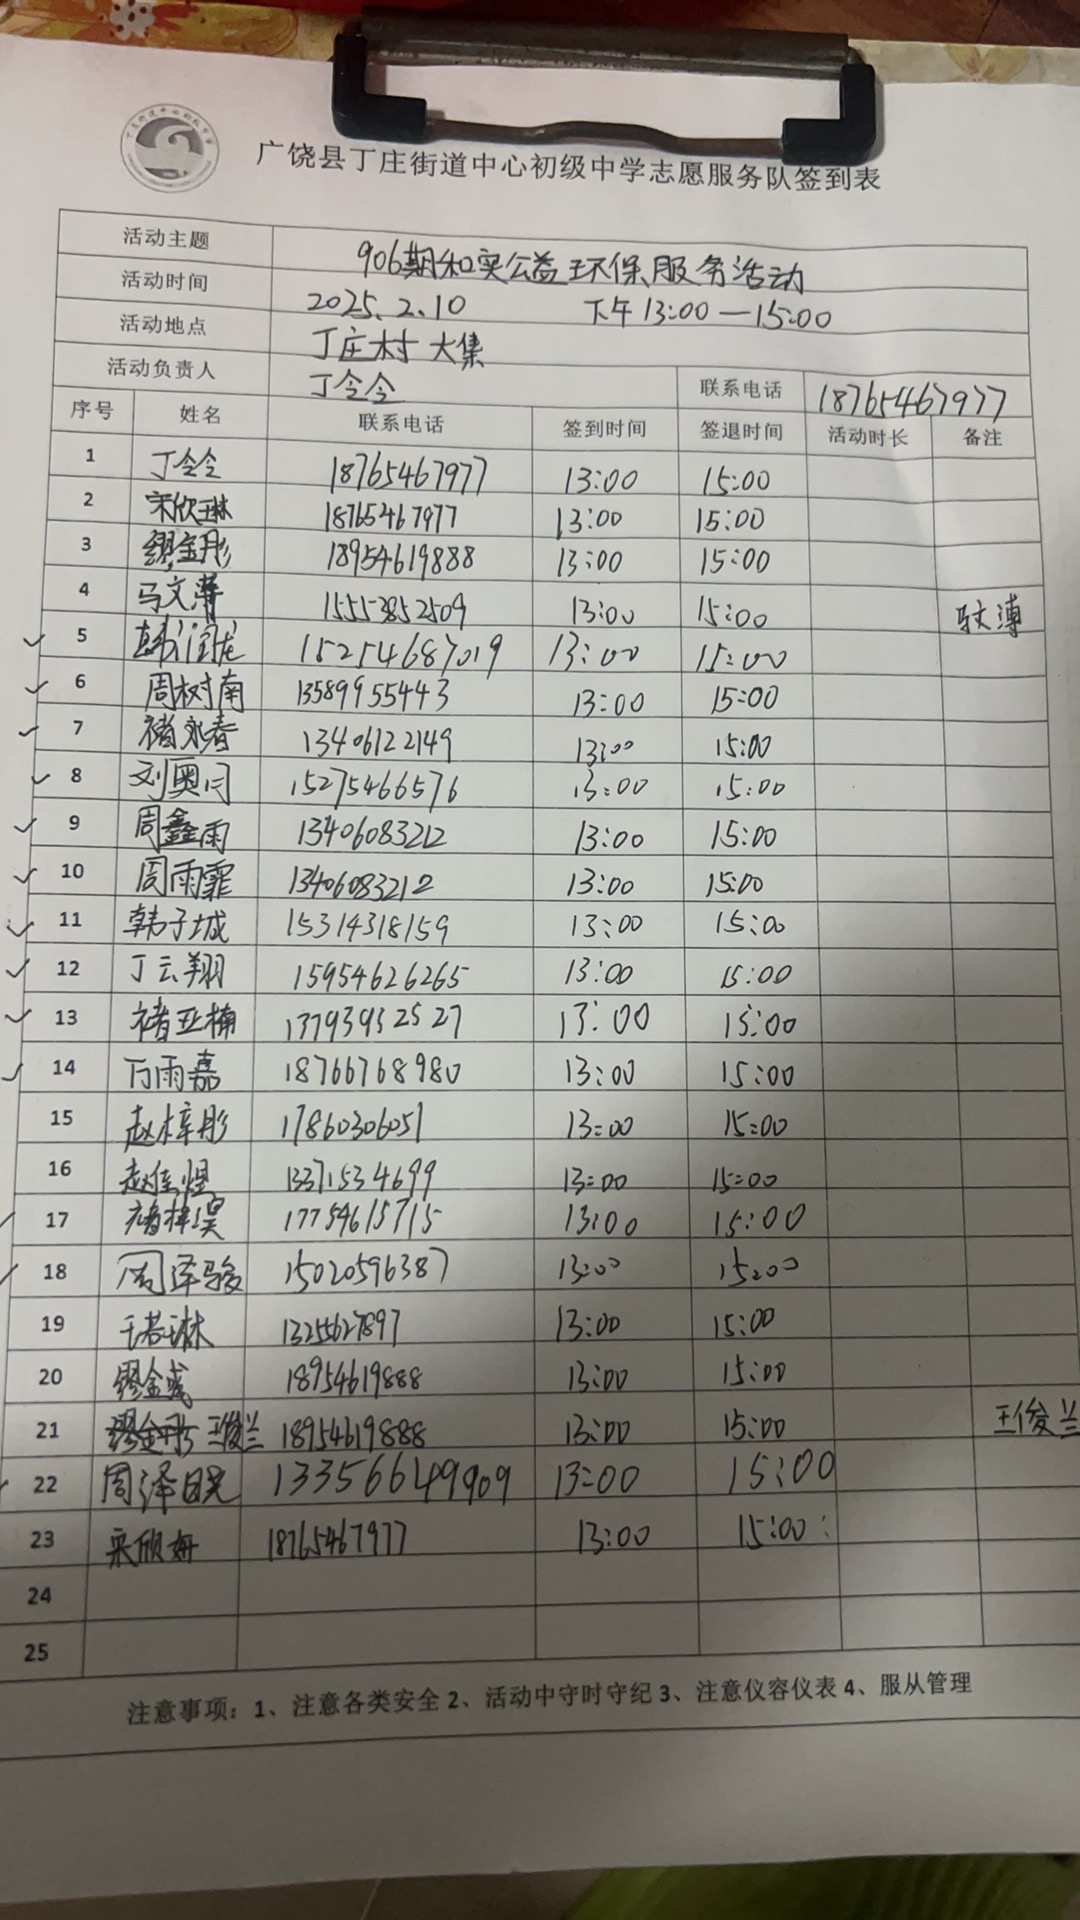 广饶县丁庄街道中心初级中学志愿服务队签到表
活动主题 906期和实公益环保服务活动
活动时间 2025.2.10 下午13:00—15:00
活动地点 丁庄村大集
活动负责人 丁令令 联系电话 18765467977
序号 姓名 联系电话 签到时间 签退时间 活动时长 备注
1 丁令令 18765467977 13:00 15:00
2 宋欣琳 18765467977 13:00 15:00
3 缪金彤 18954619888 13:00 15:00
4 马文溥 15553852509 13:00 15:00 溥
5 韩润龙 15254687019 13:00 15:00
6 周树南 13589955443 13:00 15:00
7 褚永春 13406122149 13:00 15:00
8 刘奥闫 15275466576 13:00 15:00
9 周鑫雨 13406083212 13:00 15:00
10 周雨霏 13406083212 13:00 15:00
11 韩子城 15314318159 13:00 15:00
12 丁云翔 15954626265 13:00 15:00
13 褚亚楠 13793932527 13:00 15:00
14 万雨嘉 18766768980 13:00 15:00
15 赵梓彤 17860306051 13:00 15:00
16 赵佳煜 13371534699 13:00 15:00
17 褚梓昊 17754615715 13:00 15:00
18 周泽骏 15020596387 13:00 15:00
19 王若琳 13255627897 13:00 15:00
20 缪金彧 18954619888 13:00 15:00
21 缪金彤 王俊兰 18954619888 13:00 15:00 王俊兰
22 周泽晓 13356649909 13:00 15:00
23 宋欣妍 18765467977 13:00 15:00
24
25
注意事项：1、注意各类安全 2、活动中守时守纪 3、注意仪容仪表 4、服从管理